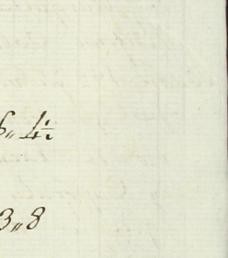 6,, 4½
3,, 8